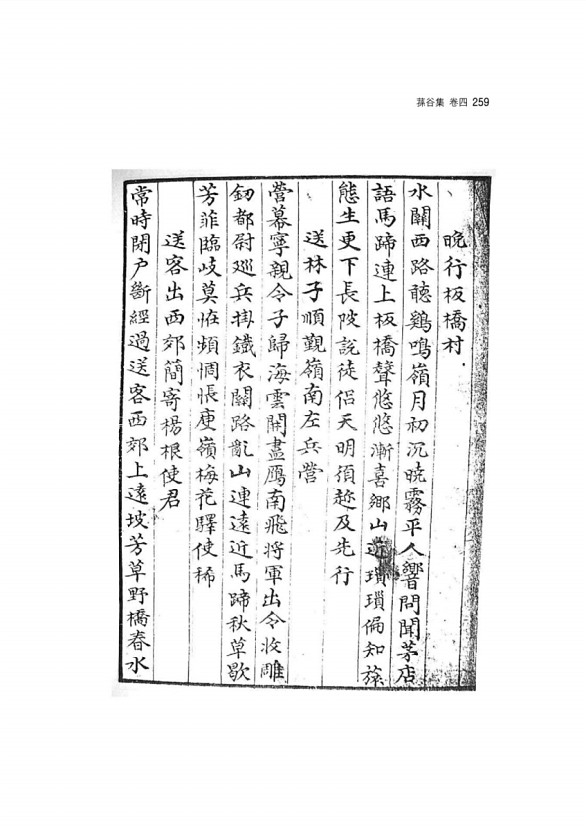 蓀谷集 卷四 259
晚行板橋村
水關西路聽鷄鳴嶺月初沉暁霧平人響問聞茅店
語馬蹄連上板橋聲悠悠漸喜鄉山近瑣瑣偏知旅
態生更下長陂說徒侶天明須趂及先行
送林子順覲嶺南左兵營
營幕寧親令子歸海雲開盡鴈南飛將軍出令收雕
釰都尉巡兵掛鐵衣關路亂山連遠近馬蹄秋草歇
芳菲臨歧莫恠頻惆悵庾嶺梅花驛使稀
送客出西郊簡寄楊根使君
常時閉户斷經過送客西郊上遠坡芳草野橋春水